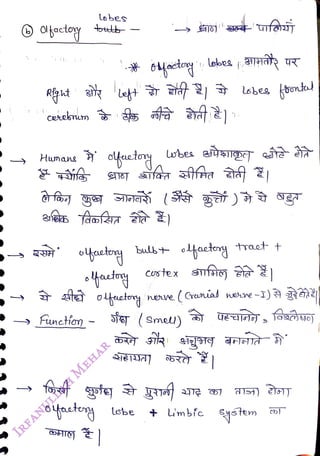 Lobes
(b) Olfactory bulb - → घ्राण पालियां
* Olfactory Lobes आमतौर पर
Right और Left दो होती हैं| ये Lobes frontal
cerebrum के ठीक नीचे होती हैं|
→ Humans में olfactory Lobes अपेक्षाकृत छोटे होते
हैं क्योंकि घ्राण शक्ति सीमित होती हैं|
लेकिन कुछ जानवरों (जैसे कुत्तों) में ये बहुत
अधिक विकसित होते हैं|
→ इसमें olfactory bulb + olfactory tract +
olfactory cortex शामिल होते हैं|
→ ये सीधे olfactory nerve (Cranial nerve-I) से जुड़े होते हैं|
→ Function - गंध (Smell) को पहचानने, विश्लेषण
करने और अनुभव बनाने में
सहायता करते हैं|
→ किसी सुगंध से पुरानी याद का ताजा होना
Olfactory Lobe + Limbic System का
कमाल हैं|
IRFANULLAJI MEHAR